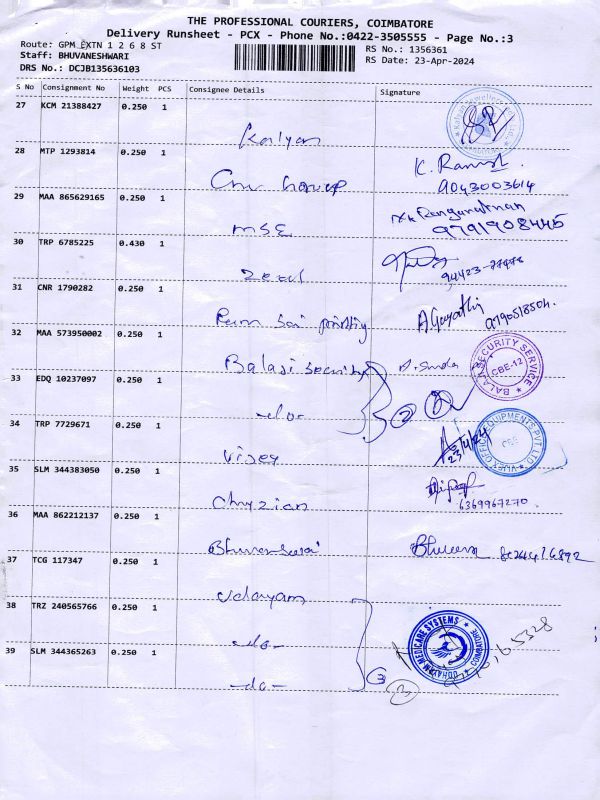 THE PROFESSIONAL COURIERS, COIMBATORE
Delivery Runsheet - PCX - Phone No.:0422-3505555 - Page No.:3
Route: GPM EXTN 1 2 6 8 ST
RS No.: 1356361
Staff: BHUVANESHWARI
RS Date: 23-Apr-2024
DRS No.: DCJB135636103
S No Consignment No Weight PCS Consignee Details Signature
27 KCM 21388427 0.250 1
Kalyan
28 MTP 1293814 0.250 1
K. Ramesh
9043003614
29 MAA 865629165 0.250 1
Ranganathan
9791908445
MSE
30 TRP 6785225 0.430 1
94423-77478
31 CNR 1790282 0.250 1
A.Gayathri
9790518504.
32 MAA 573950002 0.250 1
Balaji Security
BALAJI SECURITY SERVICE
CBE-12
33 EDQ 10237097 0.250 1
-do-
2
34 TRP 7729671 0.250 1
Vijey
23/4/24
VIJEY OFFICE EQUIPMENTS PVT. LTD
CBE
35 SLM 344383050 0.250 1
6369967270.
36 MAA 862212137 0.250 1
37 TCG 117347 0.250 1
Udayam
38 TRZ 240565766 0.250 1
-do-
UDHAYAM MEDICARE SYSTEMS
COIMBATORE
39 SLM 344365263 0.250 1
-do-
3